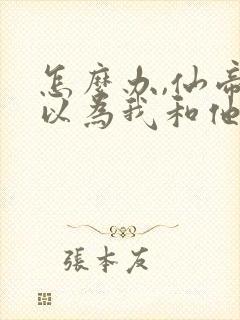 怎麼办,仙帝
以為我和他
張本友